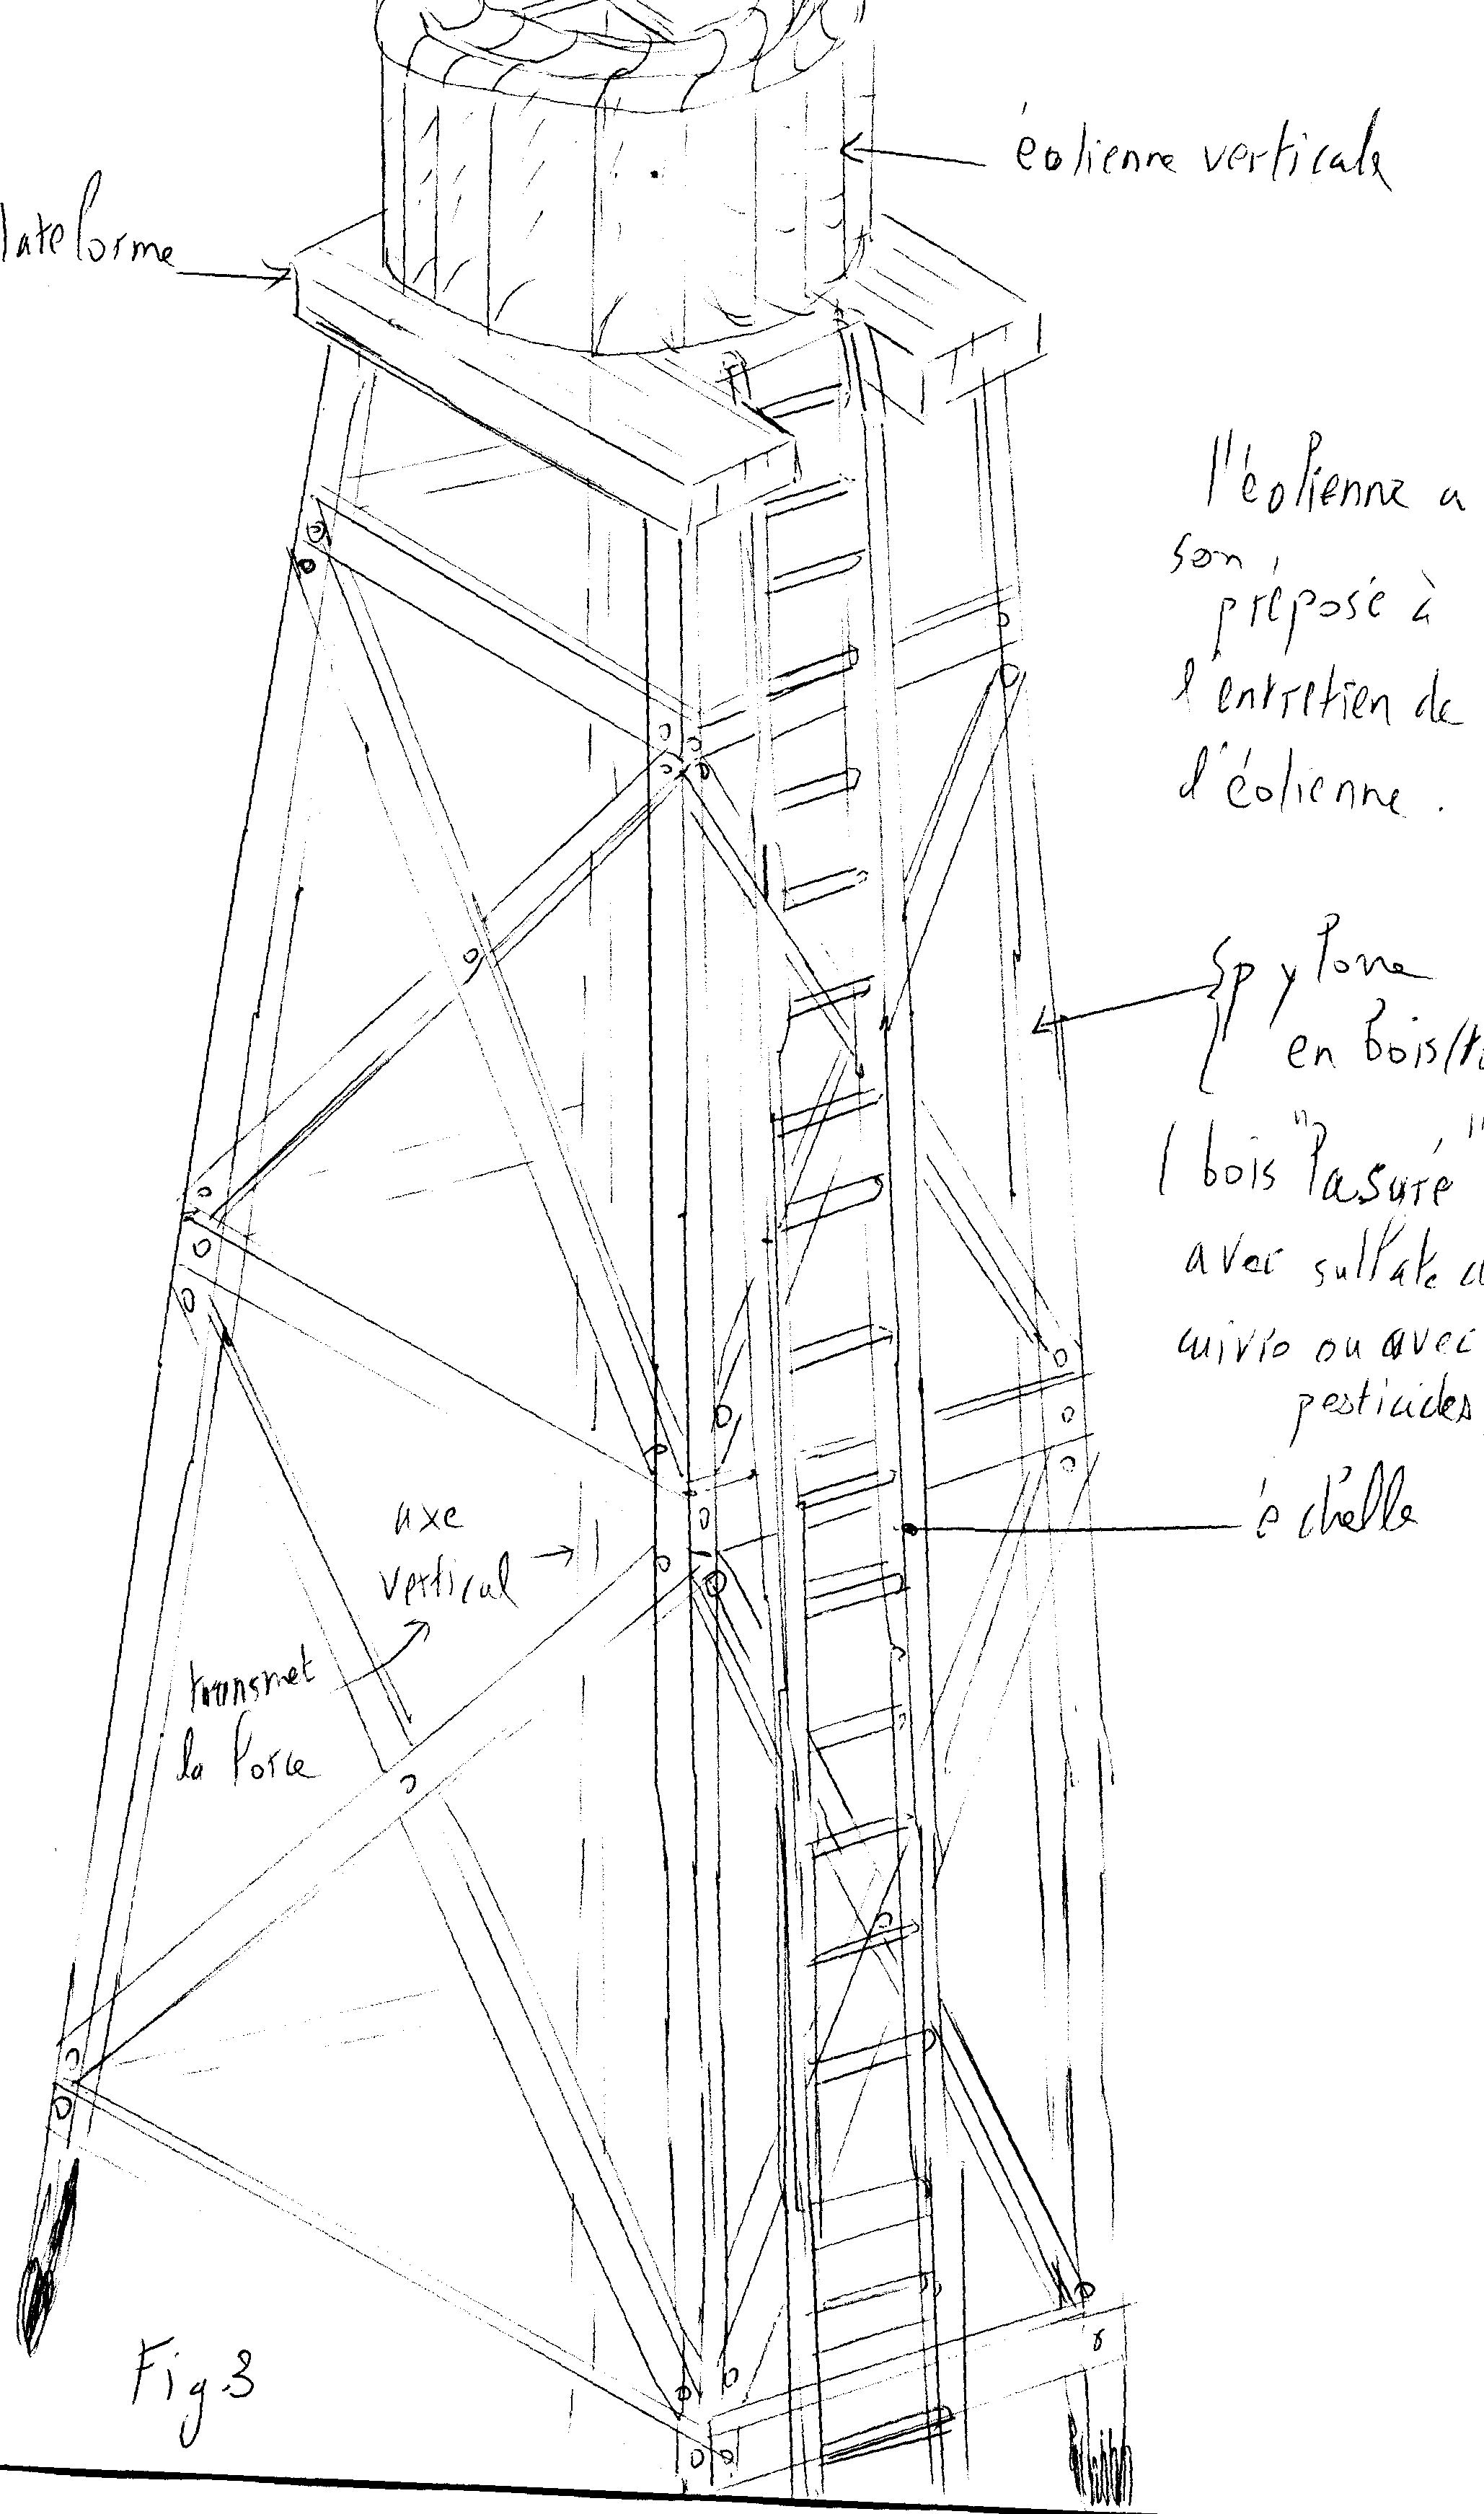 éolienne verticale
lateforme
l'éolienne a
son
préposé à
l'entretien de
l'éolienne.
pylone
en bois
bois "lasuré"
avec sulfate
cuivre ou avec
pesticides
échelle
axe
vertical
transmet
la force
Fig.3